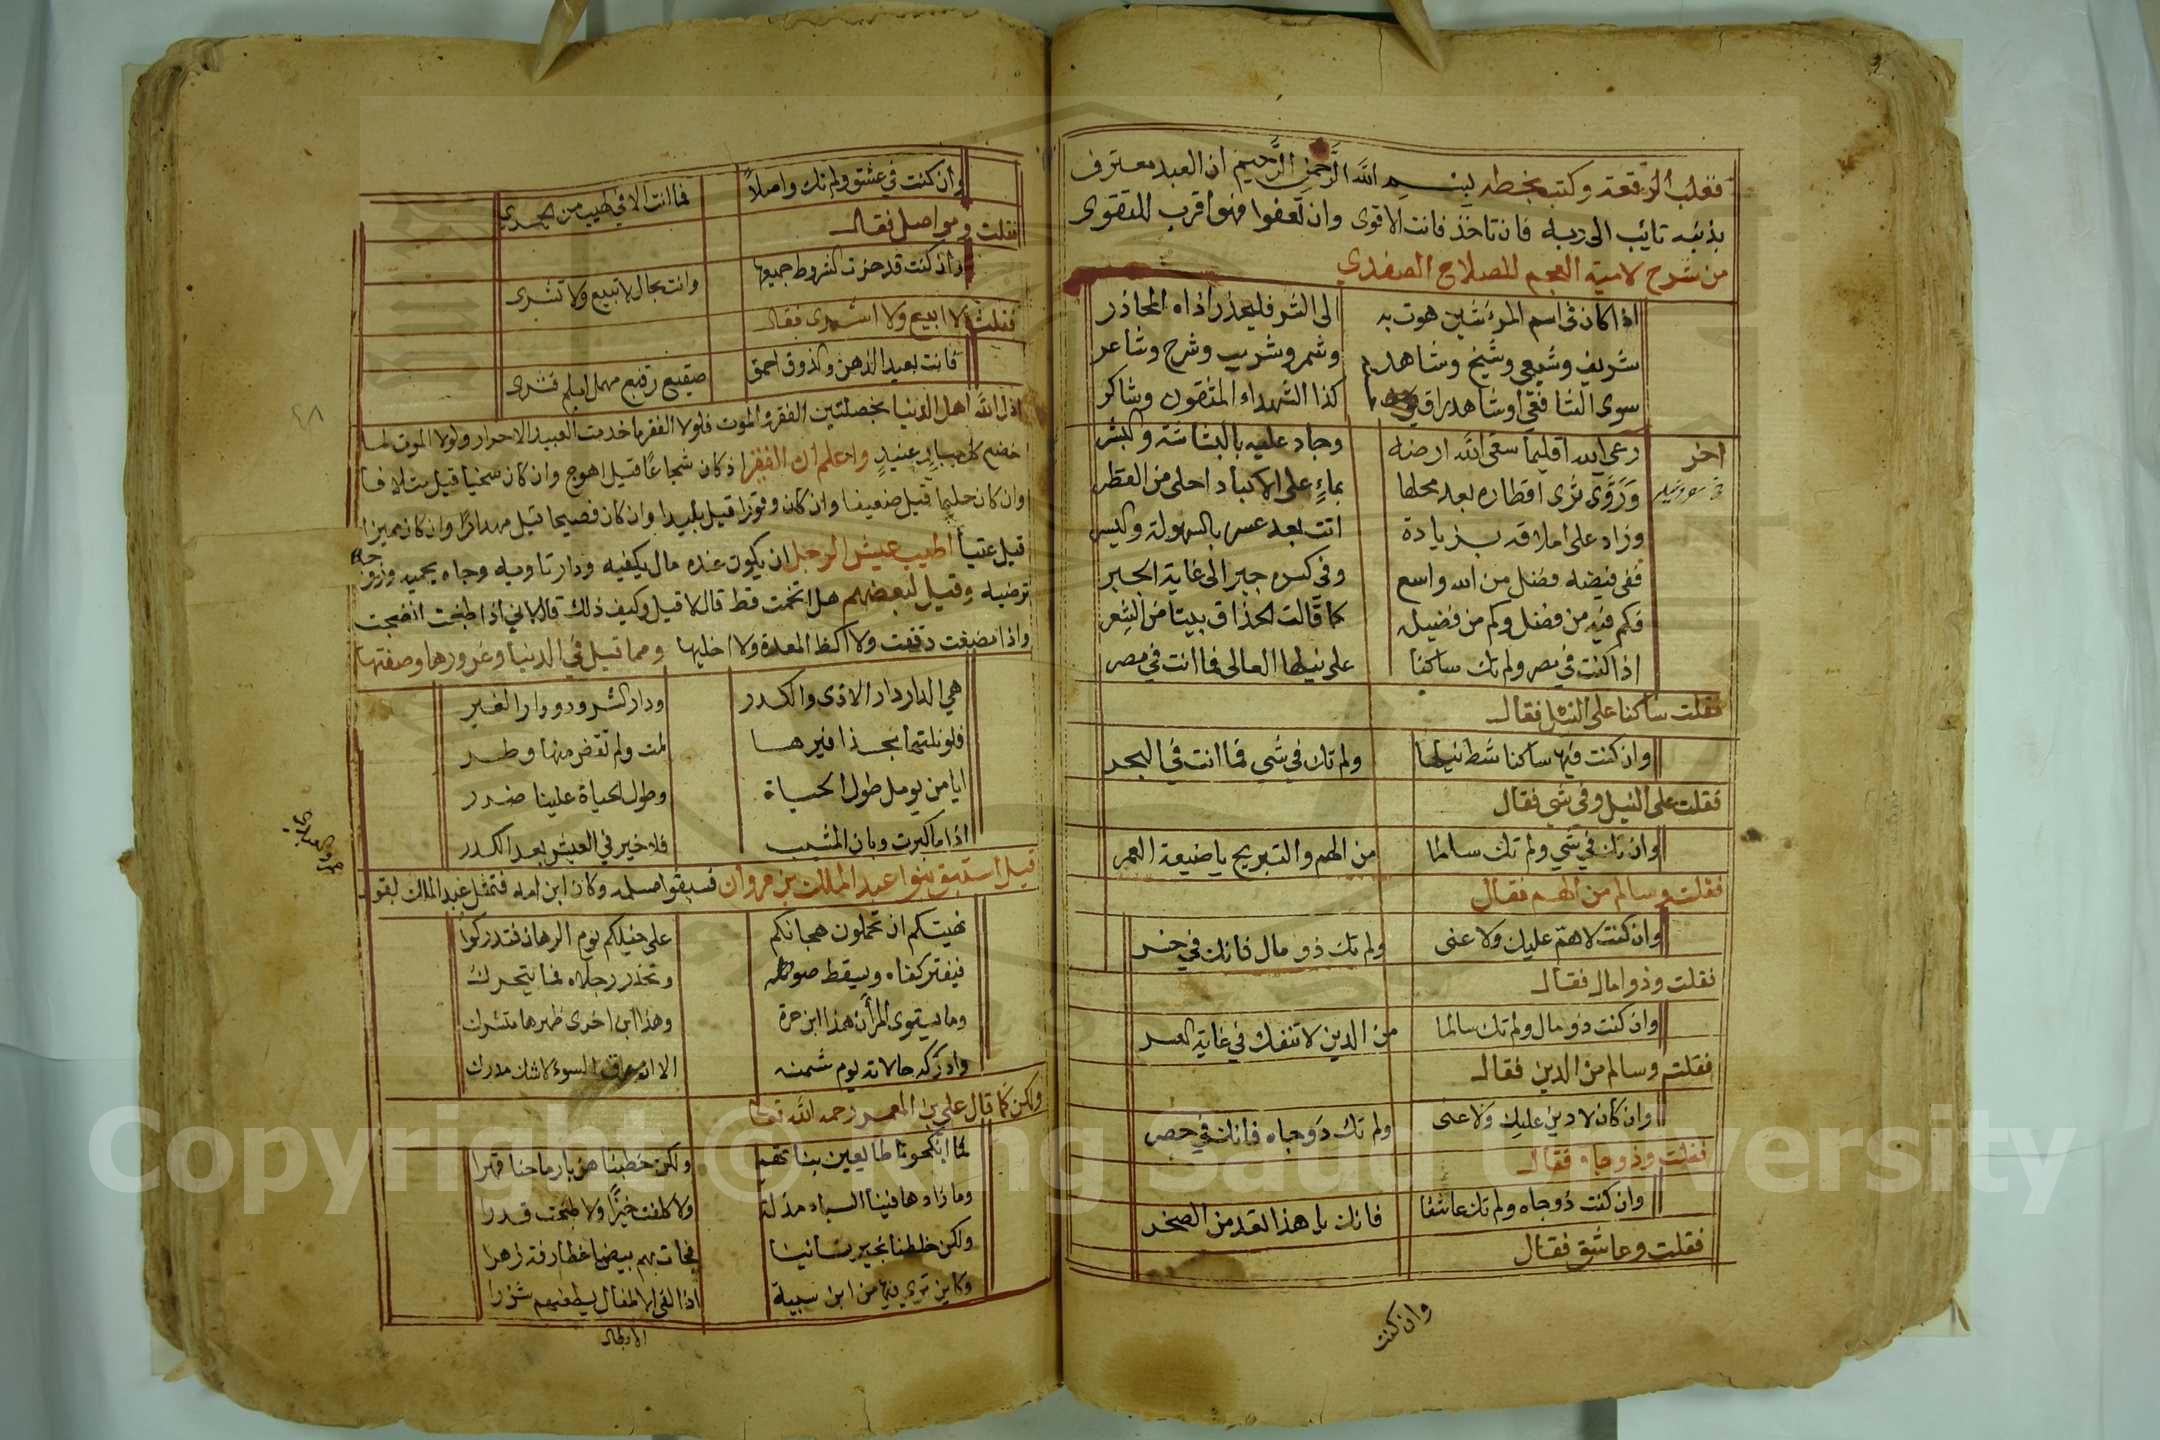 فقلب الرقعة وكتب بخطه بسم الله الرَّحمٰن الرَّحيم ان العبد معترف
بذنبه تائب الى ربه فان تاخذ فانت الاقوى وان تعفوا فهو اقرب للتقوى
من شرح لامية العجم للصلاح الصفدي
اذا كان في اسم المرء شين هوت به الى الشر فليحذر اذاه المحاذر
شريف وشيعي وشيخ وشاهد وشمر وشريب وشرح وشاعر
سوى الشافعي اوشاهد كذا الشهداء المتقون وشاكر
اخر رعى الله اقليما سقى الله ارضه وجاد عليه بالبشاشة والبشر
وَرَوَّى ثرى اقطاره بعد محلها بماءٍ على الاكباد احلى من القطر
وزاد على املاقه بزيادة اتت بعد عسر بالسهولة واليسر
ففي فيضه فضل من الله واسع وفي كسره جبر الى غاية الجبر
فكم فيه من فضل وكم من فضيلة كما قالت الحذاق بيتا من الشعر
اذا كنت في مصر ولم تك ساكنا على نيلها العالى فما انت في مصر
فقلت ساكنا على النيل فقال
وان كنت فيها ساكنا شط نيلها ولم تك في شي فما انت في البحر
فقلت على النيل وفي شي فقال
وان تك في شي ولم تك سالما من الهم والتبريح يا ضيعة العمر
فقلت وسالم من الهم فقال
وان كنت لا هم عليك ولا عنى ولم تك ذو مال فانك في خسر
فقلت وذو امال فقال
وان كنت ذو مال ولم تك سالما من الدين لا تنفك في غاية العسر
فقلت وسالم من الدين فقال
وان كان لا دين عليك ولا عنى ولم تك ذوجاه فانك في حصر
فقلت وذوجاه فقال
وان كنت ذوجاه ولم تك عاشقا فانك يا هذا تعد من الصخر
فقلت وعاشق فقال
وان كنت
وان كنت في عشق ولم تك واصلاً فما انت الا في لهيب من الجمر
فقلت ومواصل فقال
وان كنت قد حزت الشروط جميعها وانت بحال لا تبيع ولا تشرى
فقلت لا ابيع ولا اشترى فقال
فانت بعيد الذهن والذوق احمق صقيع رقيع مهمل
اذل الله اهل الدنيا بخصلتين الفقر والموت فلولا الفقر ما خدمت العبيد الاحرار ولولا الموت لما
خضع كل جبار عنيد واعلم ان الفقير اذ كان شجاعًا قيل اهوج وان كان سخيا قيل متلافا
وان كان حليما قيل ضعيفا وان كان وقورا قيل بليدا وان كان فصيحا قيل مهدارًا وان كان مميزا
قيل عتيا اطيب عيش الرجل ان يكون عنده مال يكفيه ودار تاويه وجاه يحميه وزوجة
ترضيه وقيل لبعضهم هل اتخمت قط قال لا قيل وكيف ذلك قال لاني اذا طبخت انضجت
واذا مضغت دققت ولا اكظ المعدة ولا اخليها ومما قيل في الدنيا وغرورها وصفتها
هي الدار دار الاذى والكدر ودار الشرور ودار الغير
فلو نلتها بحذافيرها لمت ولم تقض منها وطر
ايا من يومل طول الحياة وطول الحياة علينا ضرر
اذا ما كبرت وبان المشيب فلا خير في العيش بعد الكدر
قيل استبق بنوا عبد الملك بن مروان فسبقوا مسلمه وكان ابن امه فتمثل عبد الملك بقول
نهيتكم ان تحملون هجانكم على خيلكم يوم الرهان فتدركوا
فيفتر كفاه ويسقط سوطه وتخدر رجلاه فما يتحرك
وما يستوى المرأن هذا ابن حرة وهذا ابن اخرى ظهرها متشرك
وادركه خالاته يوم الا ان عرق السوء لا شك مدرك
ولكن كما قال علي بن المعمر رحمه الله تعالى
لما انكحونا طايعين بناتهم ولكن خطبناهن بارماحنا قهرا
وما زادها فينا السباء مذلة ولا كلفت خبزًا ولا طبخت قدرا
ولكن خلطنا بخير نسائنا فجات بهم بيضا غطارفة زهرا
وكاين ترى فيها من ابن سبية اذا لقى الابطال يطعنهم شزرا
الابطال
٤٨
Copyright © King Saud University